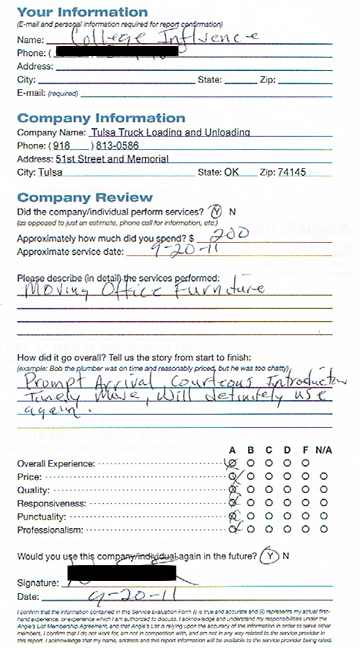 Your Information
(E-mail and personal information required for report confirmation)
Name: College Influence
Phone: (
Address:
City: State: Zip:
E-mail: (required)
Company Information
Company Name: Tulsa Truck Loading and Unloading
Phone: (918 ) 813-0586
Address: 51st Street and Memorial
City: Tulsa State: OK Zip: 74145
Company Review
Did the company/individual perform services? Y N
(as opposed to just an estimate, phone call for information, etc.)
Approximately how much did you spend? $ 200
Approximate service date: 9-20-11
Please describe (in detail) the services performed:
Moving Office Furniture
How did it go overall? Tell us the story from start to finish:
(example: Bob the plumber was on time and reasonably priced, but he was too chatty)
Prompt Arrival, Courteous Introduction
Timely Move, Will definitely use
again.
A B C D F N/A
Overall Experience:
Price:
Quality:
Responsiveness:
Punctuality:
Professionalism:
Would you use this company/individual again in the future? Y N
Signature:
Date: 9-20-11
I confirm that the information contained in this Service Evaluation Form (i) is true and accurate and (ii) represents my actual first-
hand experience, or experience which I am authorized to discuss. I acknowledge and understand my responsibilities under the
Angie's List Membership Agreement, and that Angie's List is relying upon the accuracy of the information in order to serve other
members. I confirm that I do not work for, am not in competition with, and am not in any way related to the service provider in
this report. I acknowledge that my name, address and this report information will be available to the service provider being rated.